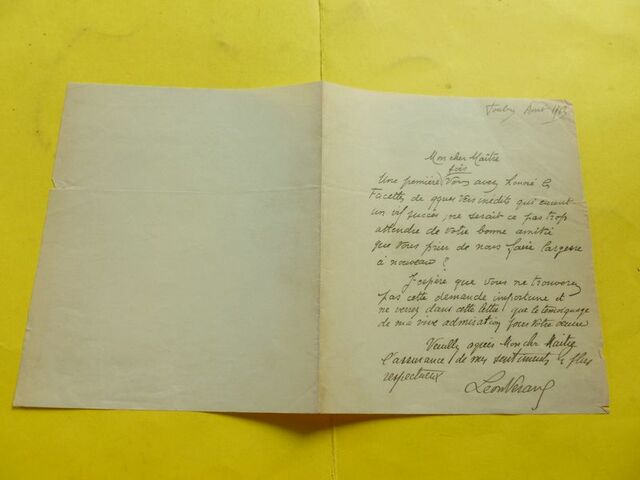 Toulon Avril
Mon cher Maître
fois
Une première vous avez honoré les
Facettes de qques vers inédits qui eurent
un vif succès, ne serait ce pas trop
attendre de votre bonne amitié
que vous prier de nous faire largesse
à nouveau ?
J'espère que vous ne trouverez
pas cette demande importune et
ne verrez dans cette lettre que le témoignage
de ma vive admiration pour votre œuvre
Veuillez agréer Mon cher Maître
l'assurance de mes sentiments les plus
respectueux
Léon Vérane